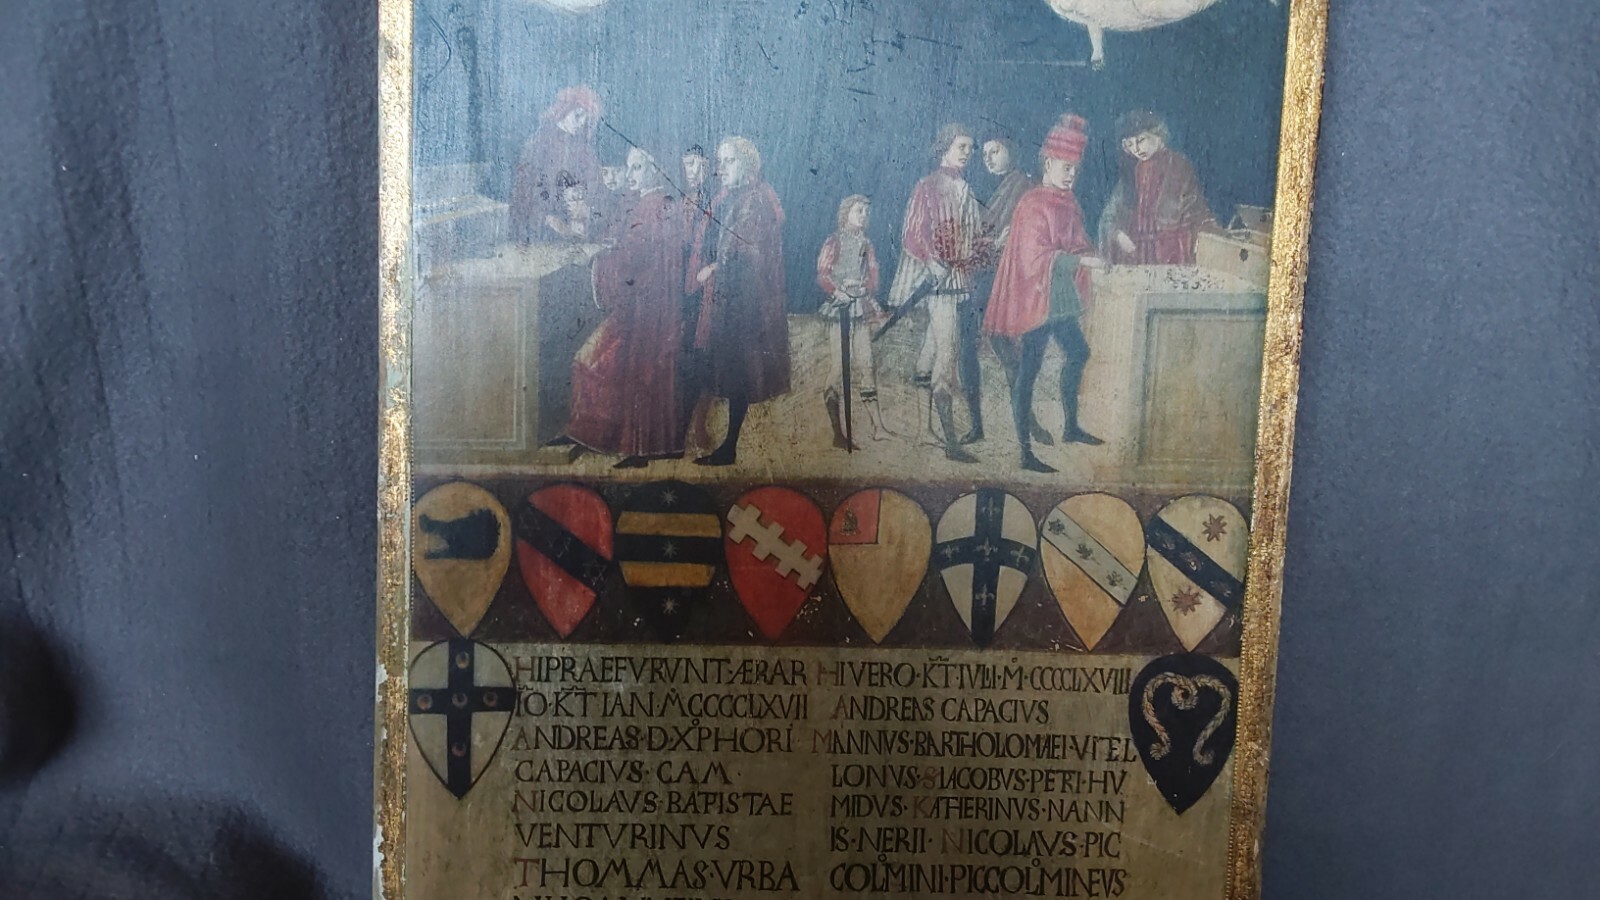 HI PRAEFVRVNT ÆRAR
IO·KT̄ IAN·M̊CCCCLXVII
ANDREAS·D·XP̊HORI
CAPACIVS·CAM·
NICOLAVS·BATISTAE
VENTVRINVS
THOMMAS·VRBA
HI VERO·KT̄·IVLI·M̊·CCCCLXVIII
ANDREAS CAPACIVS
MANNVS·BARTHOLOMAEI·VITEL
LONVS·S·IACOBVS·PETRI·HV
MIDVS·KATHERINVS·NANN
IS·NERII·NICOLAVS·PIC
COLM̊INI·PICCOLM̊INEVS